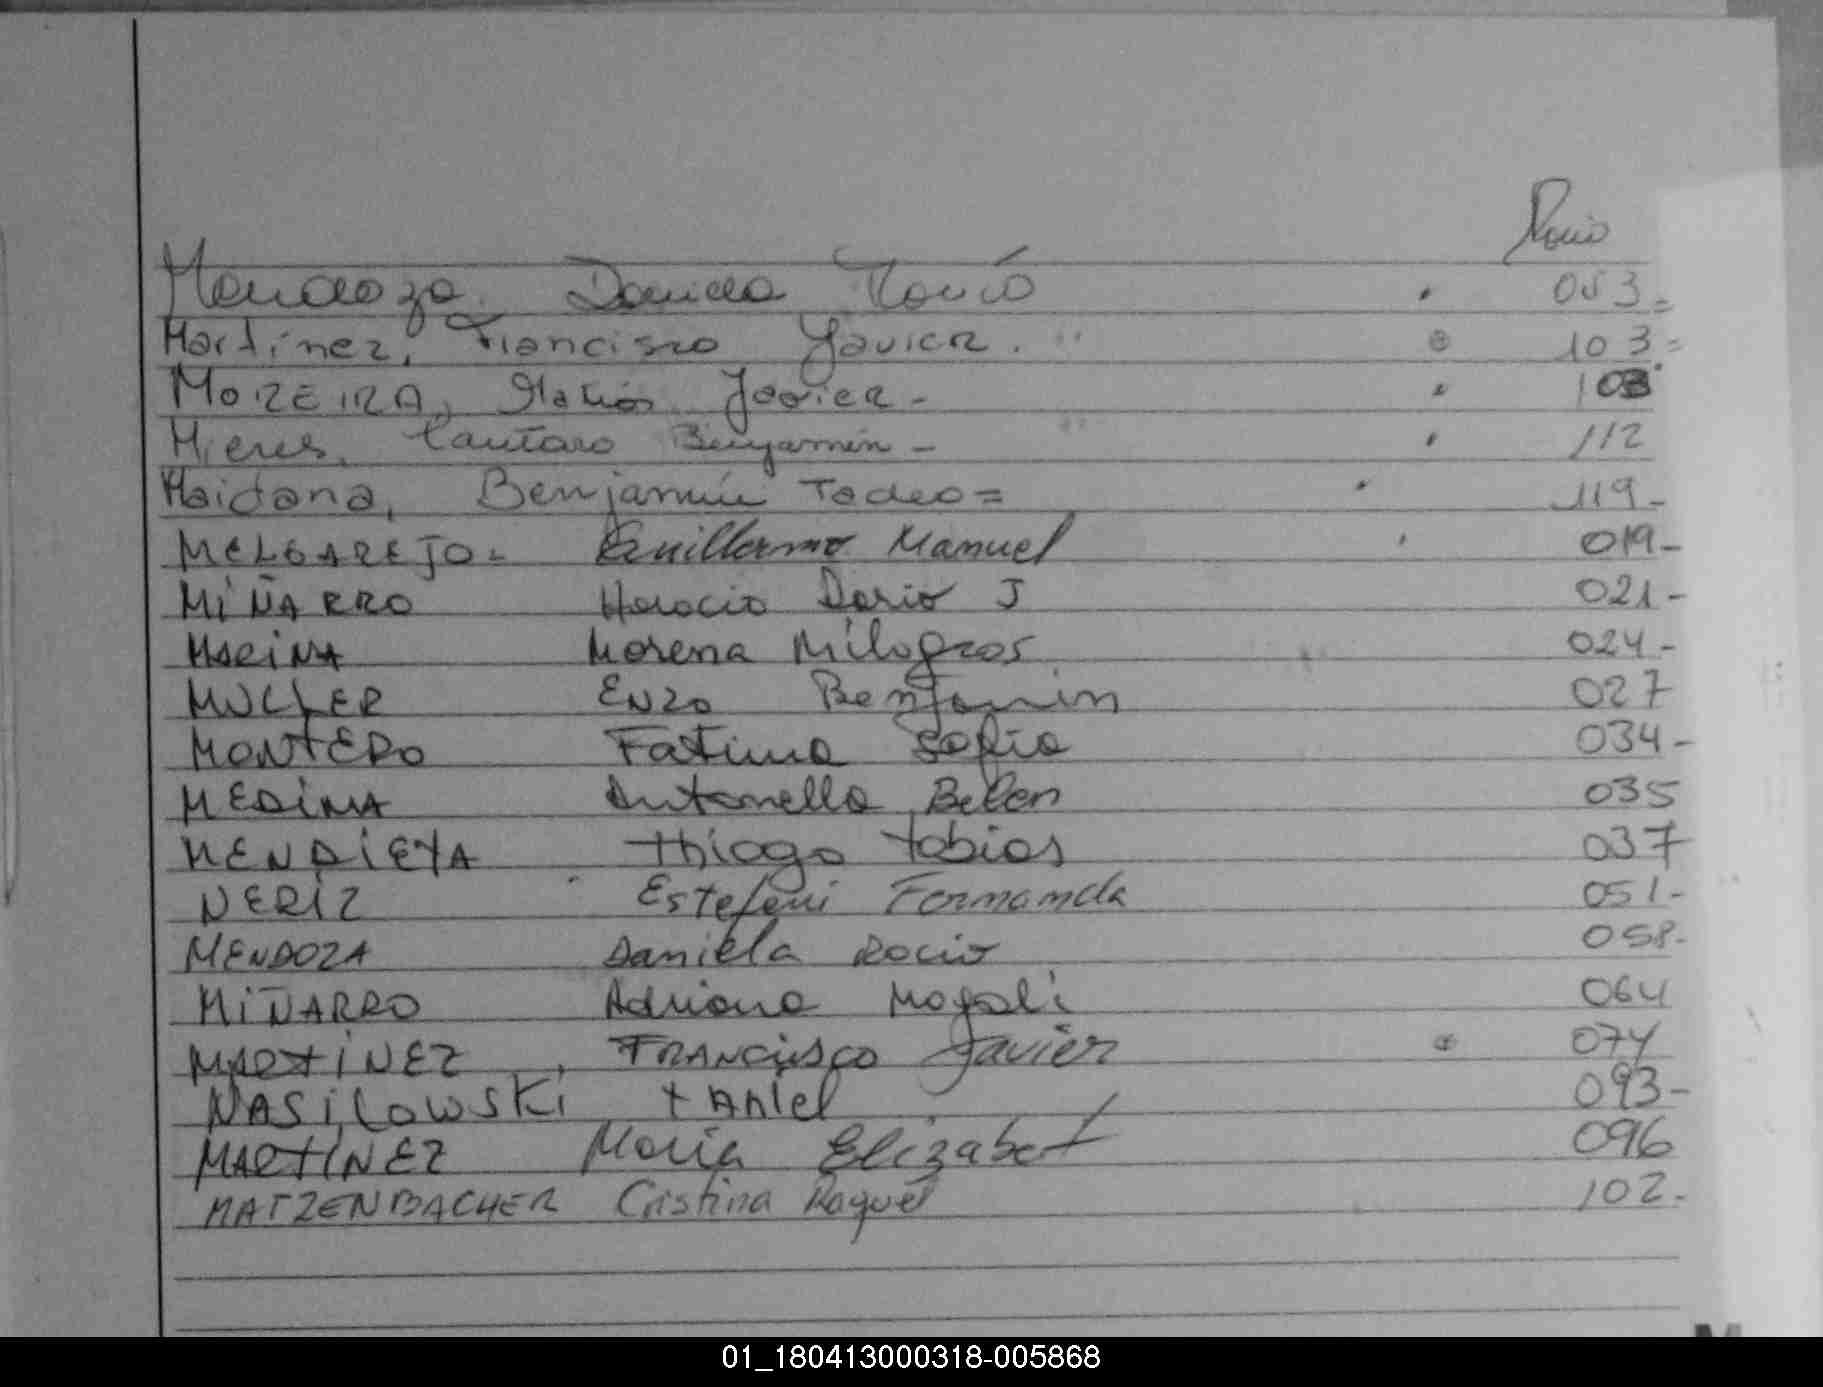 Folio
Mendoza Daniela Rocío 053=
Martínez, Francisco Javier. " 103=
MOREIRA, Matías Javier - 103
Mieres, Lautaro Benyamín - 112
Maidana, Benjamín Tadeo = 119-
MELGAREJO - Guillermo Manuel 019-
MIÑARRO Horacio Dario J 021-
MARINA Morena Milagros 024-
MULLER Enzo Benjamin 027
MONTERO Fatima Sofia 034-
MEDINA Antonella Belen 035
MENDIETA thiago tobias 037
NERIZ Estefani Fernanda 051-
MENDOZA Daniela Rocio 058-
MIÑARRO Adriana Magali 064
MARTINEZ, FRANCISCO Javier 074
NASILOWSKI tAhiel 093-
MARTINEZ Maria Elizabet 096
MATZENBACHER Cristina Raquel 102-
01_180413000318-005868